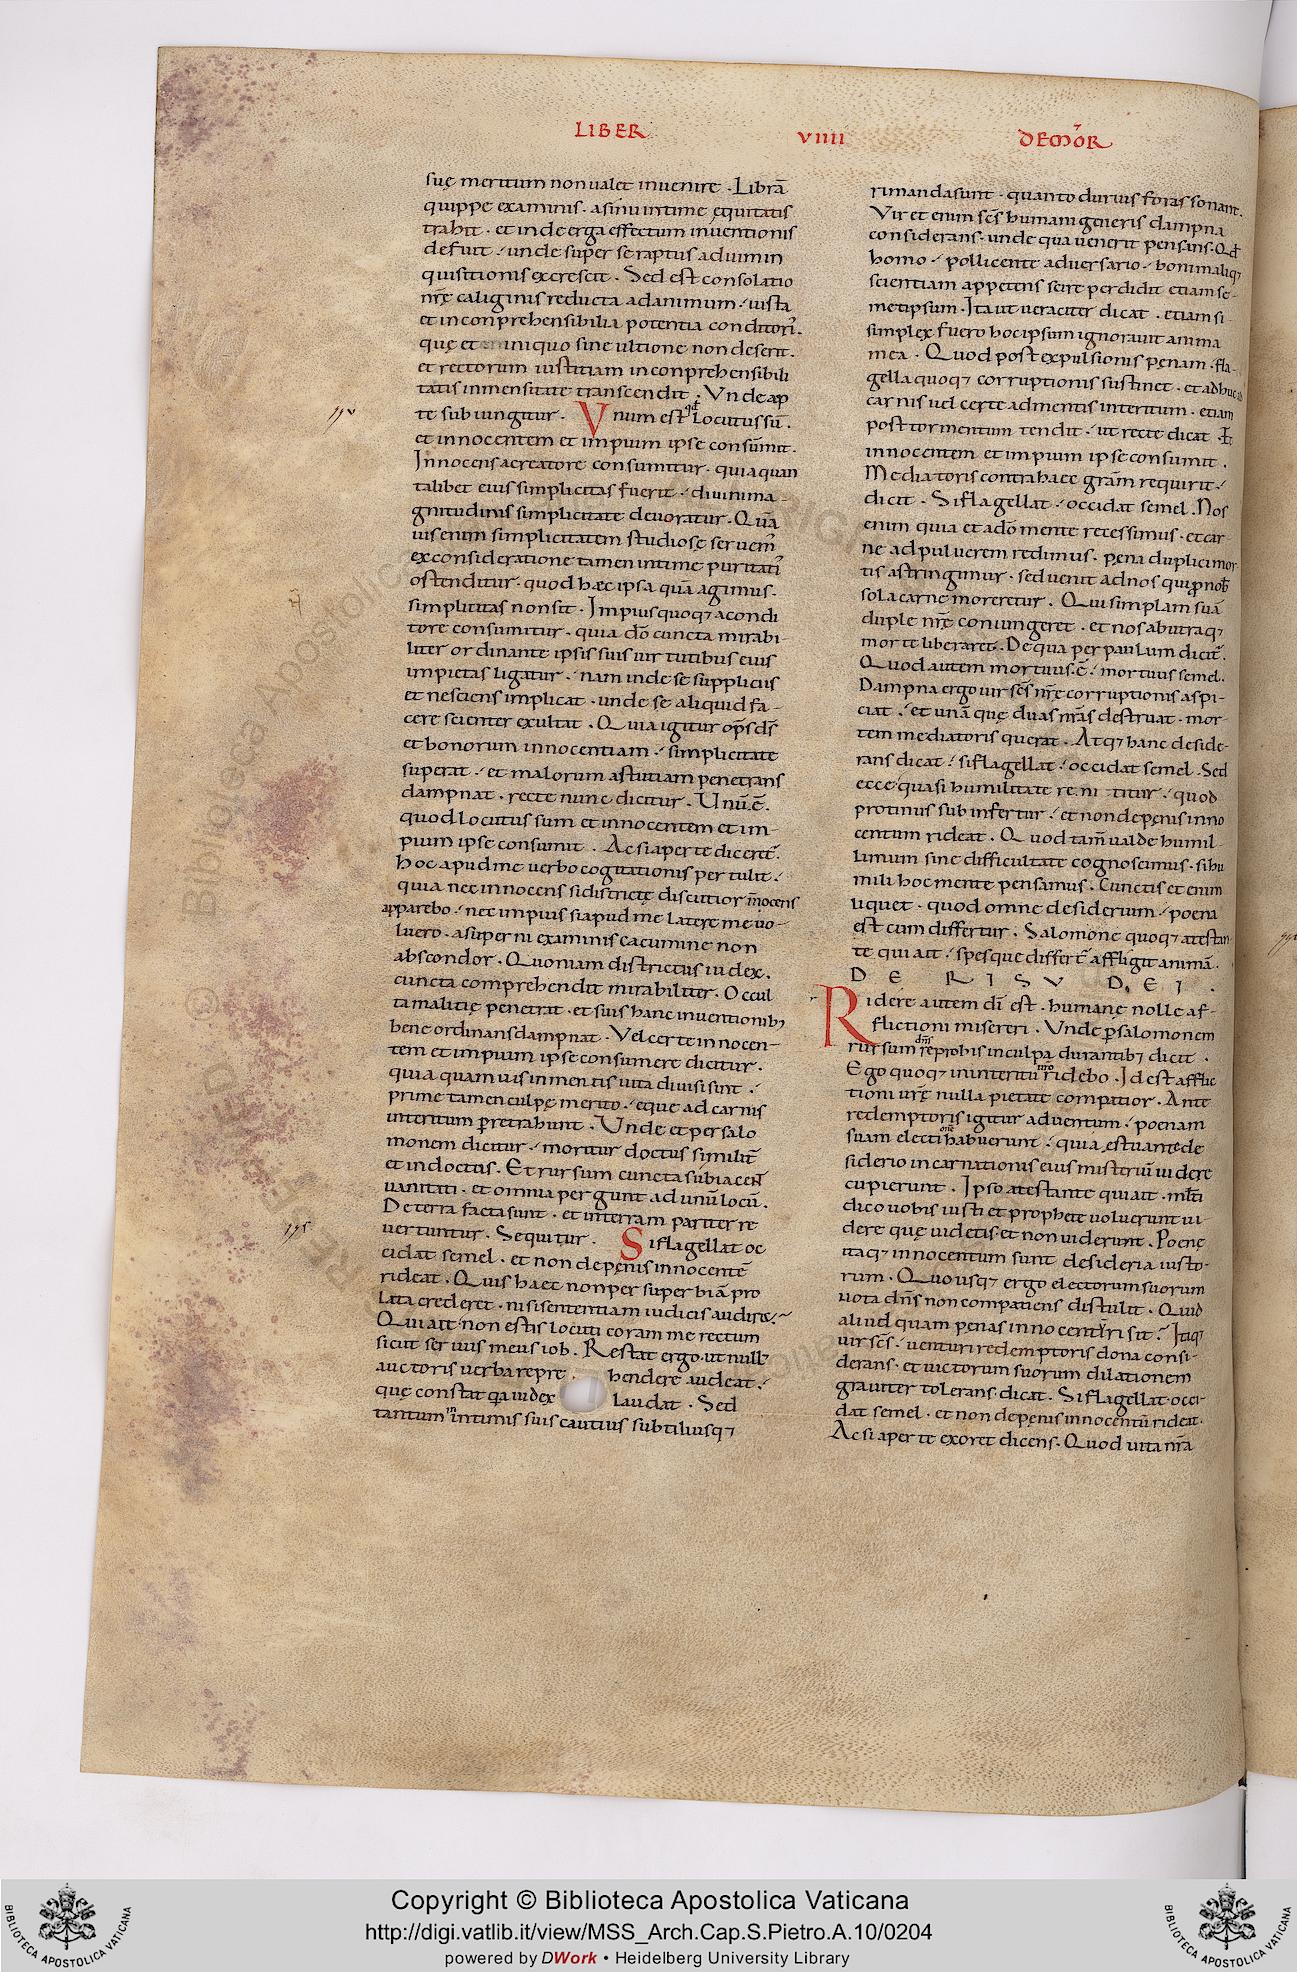 LIBER VIIII DE MOR̄
suę meritum non ualet inuenire · Librā
quippe examinis · a sinu intime ęquitatis
trahit · et inde erga effectum inuentionis
defuit · unde super se raptus ad uim in
quisitionis excrescit · Sed est consolatio
nr̄ę caliginis reducta ad animum · iusta
et inconprehensibilia potentia conditori.
quę et iniquo sine ultione non deserit.
et rectorum iustitiam inconprehensibili
tatis inmensitate transcendit · Unde ap
te subiungitur · Unum est qđ locutus sū .
et innocentem et impium ipse consumit.
Innocens a creatore consumitur · quia quan
talibet eius simplicitas fuerit · diuini ma-
gnitudinis simplicitate deuoratur · Quā
uis enim simplicitatem studiosę seruem̄
ex consideratione tamen intime puritati
ostenditur · quod hæc ipsa quā agimus.
simplicitas non sit · Impius quoq; a condi
tore consumitur · quia dō cuncta mirabi-
liter ordinante ipsis suis uirtutibus eius
impietas ligatur · nam inde se suppliciis
et nesciens implicat · unde se aliquid fa-
cere scienter exultat · Quia igitur op̄s ds̄
et bonorum innocentiam · simplicitate
superat · et malorum astutiam penetrans
dampnat · recte nunc dicitur · Unū ē.
quod locutus sum et innocentem et im-
pium ipse consumit · Ac si aperte diceret̄.
hoc apud me uerbo cogitationis pertulit ·
quia nec innocens si districtę discutior innocens
apparebo · nec impius si apud me latere me uo-
luero · a superni examinis cacumine non
abscondor · Quoniam districtus iudex.
cuncta comprehendit mirabiliter · Occul
ta malitię penetrat · et suis hanc inuentionib;
bene ordinans dampnat · Vel certe innocen-
tem et impium ipse consumere dicitur .
quia quamuis in mentis uita diuisi sunt ·
prime tamen culpę merito · eque ad carnis
interitum ꝑtrahunt · Unde et per salo
monem dicitur · moritur doctus similit̄
et indoctus. Et rursum cuncta subiacen̄
uanitati · et omnia pergunt ad unū locū.
De terra facta sunt · et in terram pariter re
uertuntur. Sequitur . Si flagellat oc
cidat semel · et non de pęnis innocentē
rideat · Quis haec non per superbiā pro
lata crederet · nisi sententiam iudicis audiss̄e.
Qui ait non estis locuti coram me rectum
sicut seruus meus iob · Restat ergo ut null᾽
auctoris uerba reprehendere audeat ·
quę constat qa iudex laudat · Sed
tantum in intimis suis cautius subtiliusq;
rimanda sunt · quanto durius foras sonant.
Vir et enim scs̄ humani generis dampna
considerans · unde qua uenerit pensans · Qđ
homo · pollicente aduersario · boni maliq;
scientiam appetens scire perdidit etiam se-
metipsum · Ita ut ueraciter dicat · etiam si
simplex fuero hoc ipsum ignorauit anima
mea · Quod post expulsionis pęnam · fla-
gella quoq; corruptionis sustinet · et adhuc ad
carnis uel certe ad mentis interitum · etiam
post tormentum tendit · ut recte dicat · Et
innocentem et impium ipse consumit .
Mediatoris contra haec gr̄am requirit ·
dicit · Si flagellat · occidat semel . Nos
enim quia et a dō mente recessimus · et car-
ne ad puluerem redimus · pęna dupli mor-
tis astringimur · sed uenit ad nos qui ꝓ nob̄
sola carne moreretur . Qui simplam suā
duple nr̄ę coniungeret · et nos ab utraq;
morte liberaret. De qua per paulum dicit̄.
Quod autem mortuus ē · mortuus semel.
Dampna ergo uir scs̄ nr̄ę corruptionis aspi-
ciat · et unā quę duas nr̄as destruat · mor-
tem mediatoris querat · Atq; hanc deside-
rans dicat · si flagellat · occidat semel · Sed
ecce quasi humilitate renititur · quod
protinus subinfertur · et non de pęnis inno
centum rideat . Quod tam̄ ualde humil-
limum sine difficultate cognoscimus · si hu
mili hoc mente pensamus · Cunctis et enim
liquet · quod omne desiderium · poena
est cum differtur · Salomone quoq; atestan
te qui ait · spes que differt̄ affligit animā.
DE RISV DEI .
Ridere autem dī est · humanę nolle af-
flictioni misereri · Vnde ꝑ salomonem
rursum dn̄s reprobis in culpa durantib; dicit .
Ego quoq; in interitu uro ridebo · Id est afflic
tioni ur̄ę nulla pietate compatior · Ante
redemptoris igitur aduentum · poenam
suam electi om̄s habuerunt · quia estuante de
siderio incarnationis eius misteriū uidere
cupierunt · Ipso atestante qui ait · mlti
dico uobis iusti et prophete uoluerunt ui-
dere quę uidetis · et non uiderunt · Poenę
itaq; innocentum sunt desideria iusto-
rum · Quousq; ergo electorum suorum
uota dn̄s non compatiens distulit · Quid
aliud quam penas innocentū ri sit · Itaq;
uir scs̄ · uenturi redemptoris dona consi-
derans · et uictorum suorum dilationem
grauiter tolerans · dicat · Si flagellat · occi-
dat semel · et non de pęnis innocentū rideat.
Ac si aperte exoret dicens · Quod uita nr̄a
Copyright © Biblioteca Apostolica Vaticana
http://digi.vatlib.it/view/MSS_Arch.Cap.S.Pietro.A.10/0204
powered by DWork • Heidelberg University Library